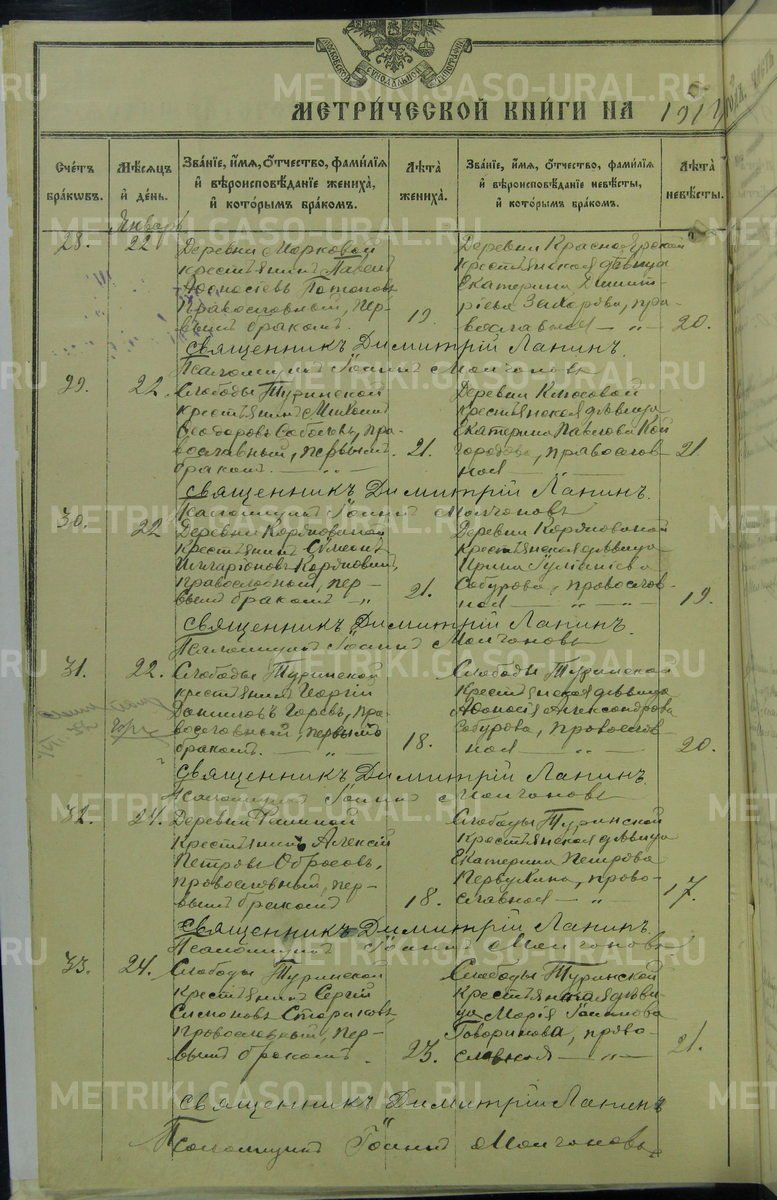 МОСКОВСКОЙ СѴНОДАЛЬНОЙ ТИПОГРАФІИ
МЕТРИ́ЧЕСКОЙ КНИ́ГИ НА 191 года, часть
Сче́тъ бра́кѡвъ.
Мѣ́сяцъ и҆ де́нь.
Зва́нїе, и҆́мѧ, ѻ҆́тчество, фами́лїѧ
и҆ вѣроисповѣ́данїе жениха̀,
и҆ кото́рымъ бра́комъ.
Лѣ̑та жениха̀.
Зва́нїе, и҆́мѧ, ѻ҆́тчество, фами́лїѧ
и҆ вѣроисповѣ́данїе невѣ́сты,
и҆ кото́рымъ бра́комъ.
Лѣ̑та невѣ́сты.
Январь
28. 22
Деревни Марковой
крестьянинъ Павелъ
Афанасіевъ Потаповъ
Православный, пер-
вымъ бракомъ.
19.
Деревни Красноярской
крестьянская дѣвица
Екатерина Димит-
ріева Захарова, пра-
вославная — „ —
20.
Священникъ Димитрій Лапинъ.
Псаломщикъ Іоаннъ Молчановъ
29. 22.
Слободы Туринской
крестьянинъ Михаилъ
Ѳеодоровъ Соболевъ, пра-
вославный, первымъ
бракомъ. — „ —
21.
Деревни Клюсовой
крестьянская дѣвица
Екатерина Павлова Кай
городова, православ-
ная — „ —
21
Священникъ Димитрій Лапинъ.
Псаломщикъ Іоаннъ Молчановъ
30. 22
Деревни
крестьянинъ Сѵмеонъ
Илларіоновъ
православный, пер-
вымъ бракомъ — „
21.
Деревни
крестьянская дѣвица
Ирина Іуліаніева
Сабурова, православ-
ная — „ — „ —
19.
Священникъ Димитрій Лапинъ.
Псаломщикъ Іоаннъ Молчановъ
31. 22.
Слободы Туринской
крестьянинъ Георгій
Даниловъ Горевъ, пра-
вославный, первымъ
бракомъ. — „ —
18.
Слободы Туринской
крестьянская дѣвица
Афанасія Александрова
Сабурова, православ
ная — „ —
20.
Священникъ Димитрій Лапинъ.
Псаломщикъ Іоаннъ Молчановъ
32. 24.
Деревни
крестьянинъ Алексій
Петровъ Обросовъ,
православный, пер-
вымъ бракомъ
18.
Слободы Туринской
крестьянская дѣвица
Екатерина Петрова
Первухина, право-
славная — „
17.
Священникъ Димитрій Лапинъ.
Псаломщикъ Іоаннъ Молчановъ
33. 24.
Слободы Туринской
крестьянинъ Сергій
Симоновъ Стариковъ,
православный, пер-
вымъ бракомъ.
23.
Слободы Туринской
крестьянская дѣви-
ца Марія Іоаннова
Говорикова, право-
славная — „ —
21.
Священникъ Димитрій Лапинъ
Псаломщикъ Іоаннъ Молчановъ
METRIKI.GASO-URAL.RU